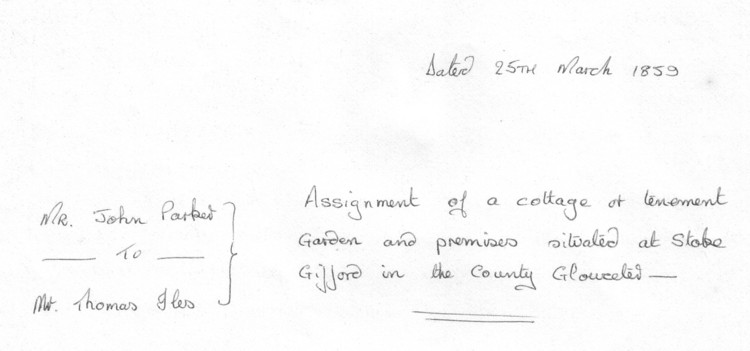 Dated 25TH March 1859
Mr. John Parker
To
Mr. Thomas Iles
Assignment of a cottage or tenement
Garden and premises situated at Stoke
Gifford in the County Glouceter